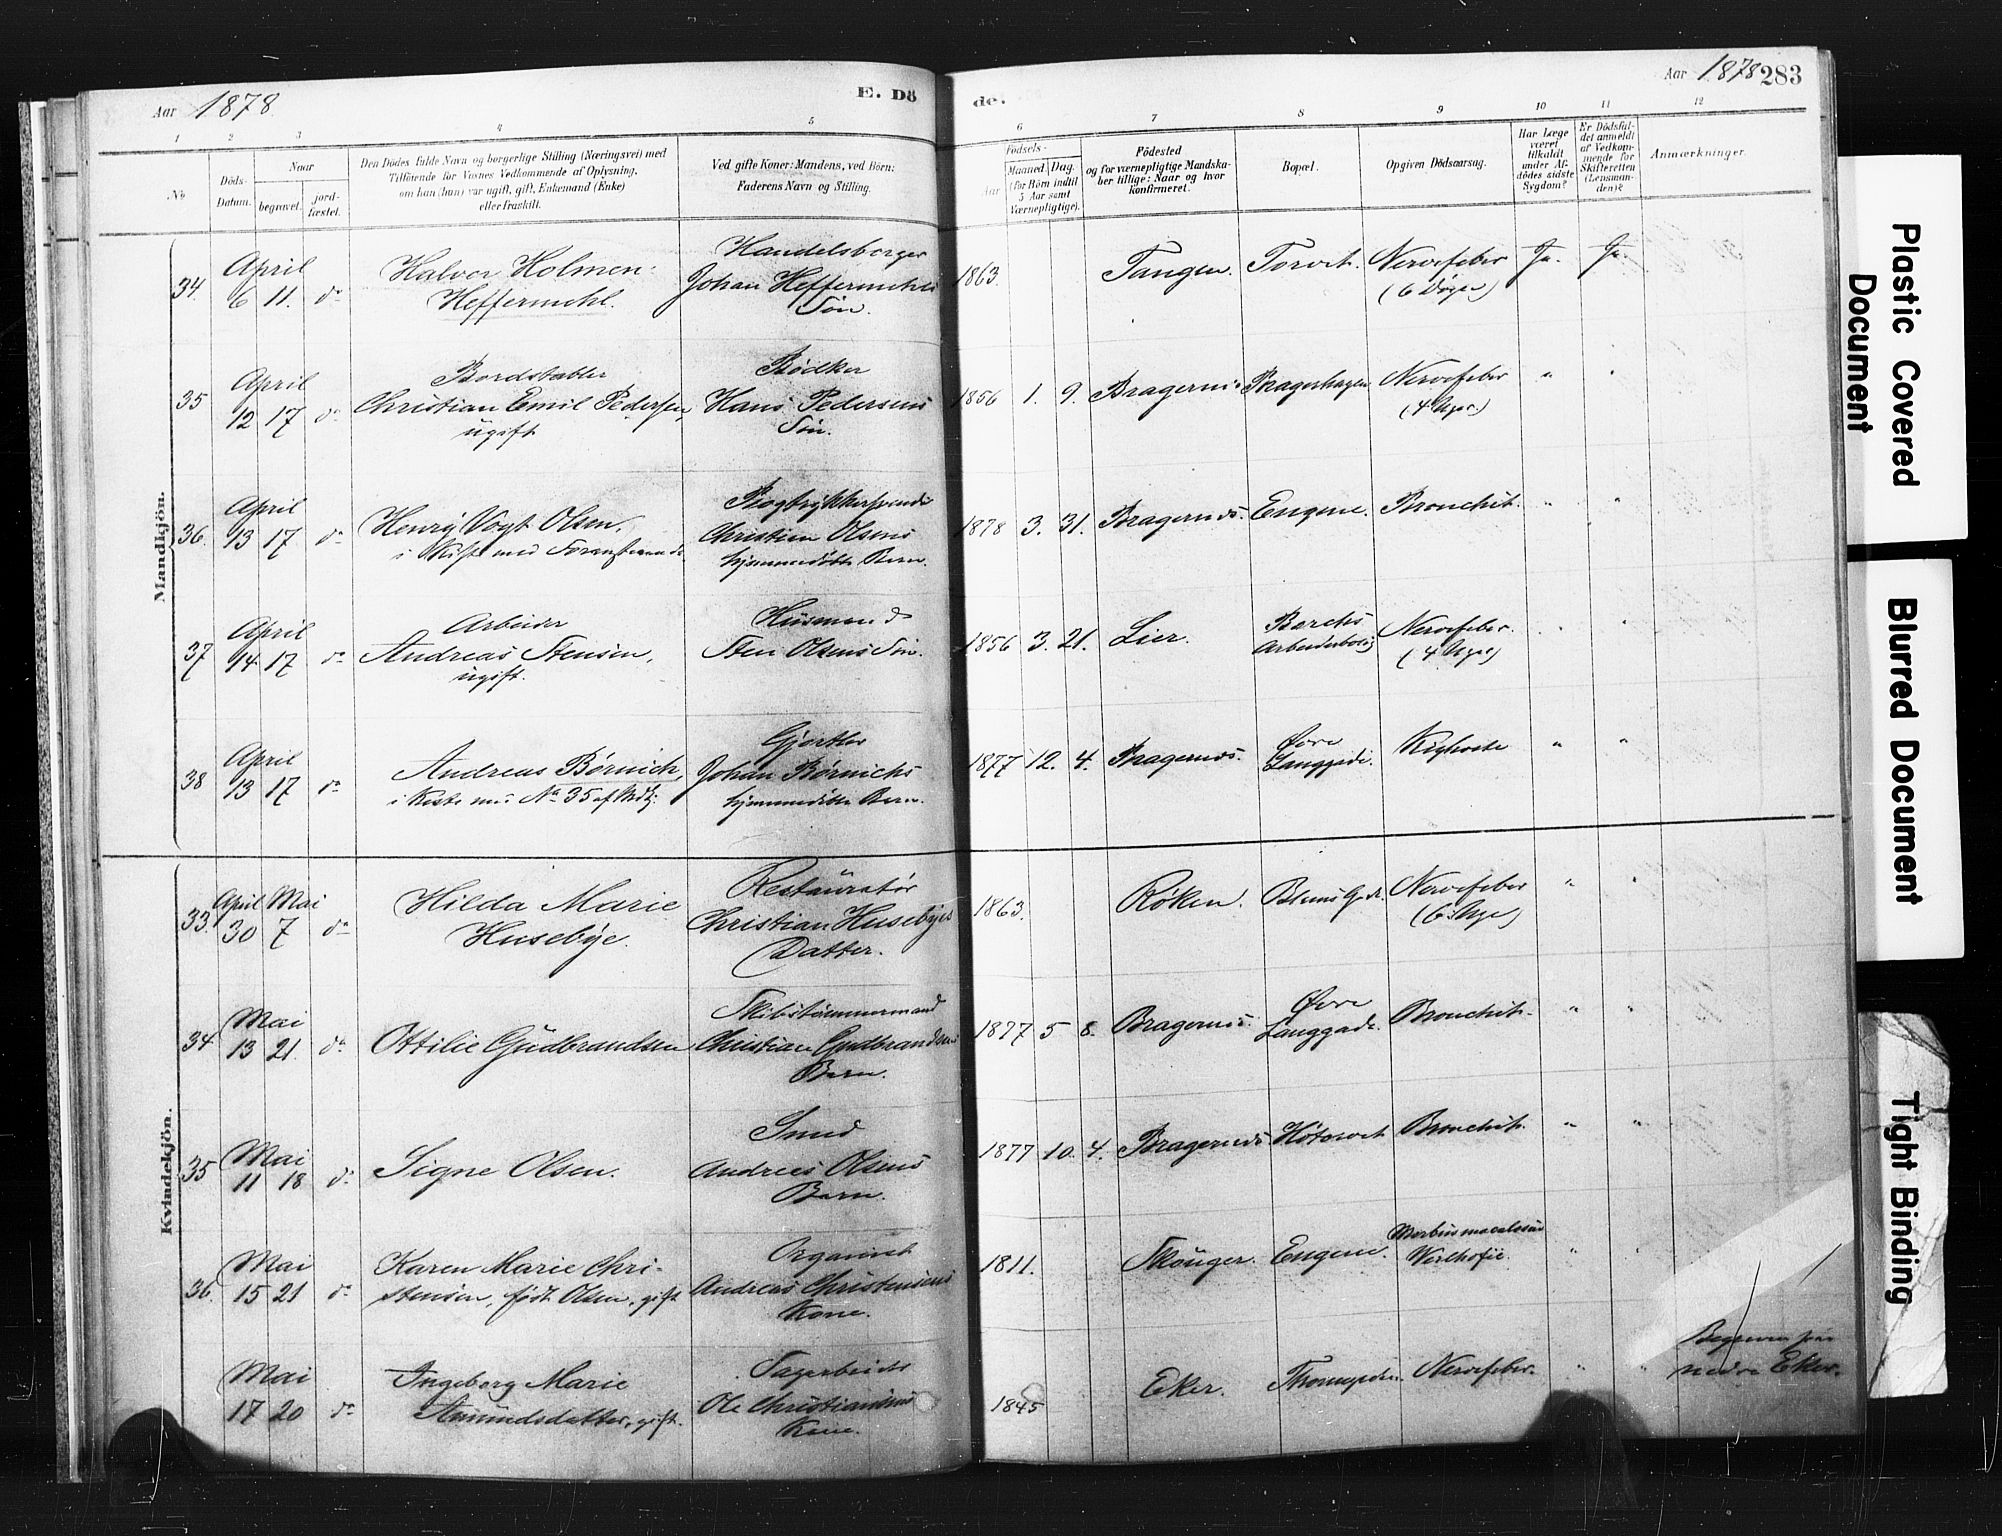 Aar 1878.
E. Dö
de.
Aar 1878 283
1 2 3 4 5 6 7 8 9 10 11 12
No
Döds-Datum.
Naar
begravet.
jord-fæstet.
Den Dödes fulde Navn og borgerlige Stilling (Næringsvei) med
Tilföiende for Voxnes Vedkommende af Oplysning,
om han (hun) var ugift, gift, Enkemand (Enke)
eller fraskilt.
Ved gifte Koner: Mandens, ved Börn:
Faderens Navn og Stilling.
Födsels-
Aar
Maaned.
Dag.
(for Börn indtil
5 Aar samt
Værnepligtige).
Födested
og for værnepligtige Mandska-
ber tillige: Naar og hvor
konfirmeret.
Bopæl.
Opgiven Dödsaarsag.
Har Læge
været
tilkaldt
under Af-
dödes sidste
Sygdom?
Er Dödsfal-
det anmeldt
af Vedkom-
mende for
Skifteretten
(Lensman-
den)?
Anmærkninger.
Mandkjön.
34. April 6 11. do
Halvor Holmen
Heffermehl.
Handelsborger
Johan Heffermehls
Søn.
1863. Tangen. Torvet. Nervefeber
(6 Døgn) Ja. Ja.
35 April 12 17 do
Bordstabler
Christian Emil Pedersen,
ugift
Bødker
Hans Pedersens
Søn.
1856 1. 9. Bragernes Bragerhagen Nervefeber
(4 Uger.) " "
36. April 13 17 do
Henry Vogt Olsen,
i Kiste med
Bogtrykkersvend
Christian Olsens
hjemmedøbte Barn.
1878 3. 31. Bragernes. Engene. Bronchit. " "
37 April 14 17 do
Arbeider
Andreas Stensen,
ugift.
Husmand
Sten Olsens Søn.
1856 3. 21. Lier. Borchs
Arbeiderbolig Nervefeber.
(4 Uger) " "
38 April 13 17 do
Andreas Børnich,
i Kiste med No 35 af Mdkj.
Gjørtler
Johan Børnichs
hjemmedøbte Barn.
1877 12. 4. Bragernes. Øvre
Langgade. Kighoste " "
Kvindekjön.
33. April 30 Mai 7 do
Hilda Marie
Husebye.
Restauratør
Christian Husebyes
Datter.
1863. Røken. Nervefeber
(6 Uger) " "
34 Mai 13 21. do
Ottilie Gudbrandsen
Skibstømmermand
Christian Gudbrandsens
Barn.
1877 5 8. Bragernes. Øvre
Langgade. Bronchit. " "
35 Mai 11 18 do
Signe Olsen.
Smed
Andreas Olsens
Barn.
1877 10. 4. Bragernes Høtorvet Bronchit. " "
36. Mai 15 21 do
Karen Marie Chri-
stensen, født Olsen, gift
Organist
Andreas Christensens
Kone.
1811. Skouger. Engene. Morbus maculosus
Werlhofii. " "
Mai 17 20 do
Ingeborg Marie
Amundsdatter, gift.
Sagarbeider
Ole Christiansens
Kone.
1845 Eker. Nervefeber. " "
nedre Eker.
Plastic Covered
Document
Blurred Document
Tight Binding